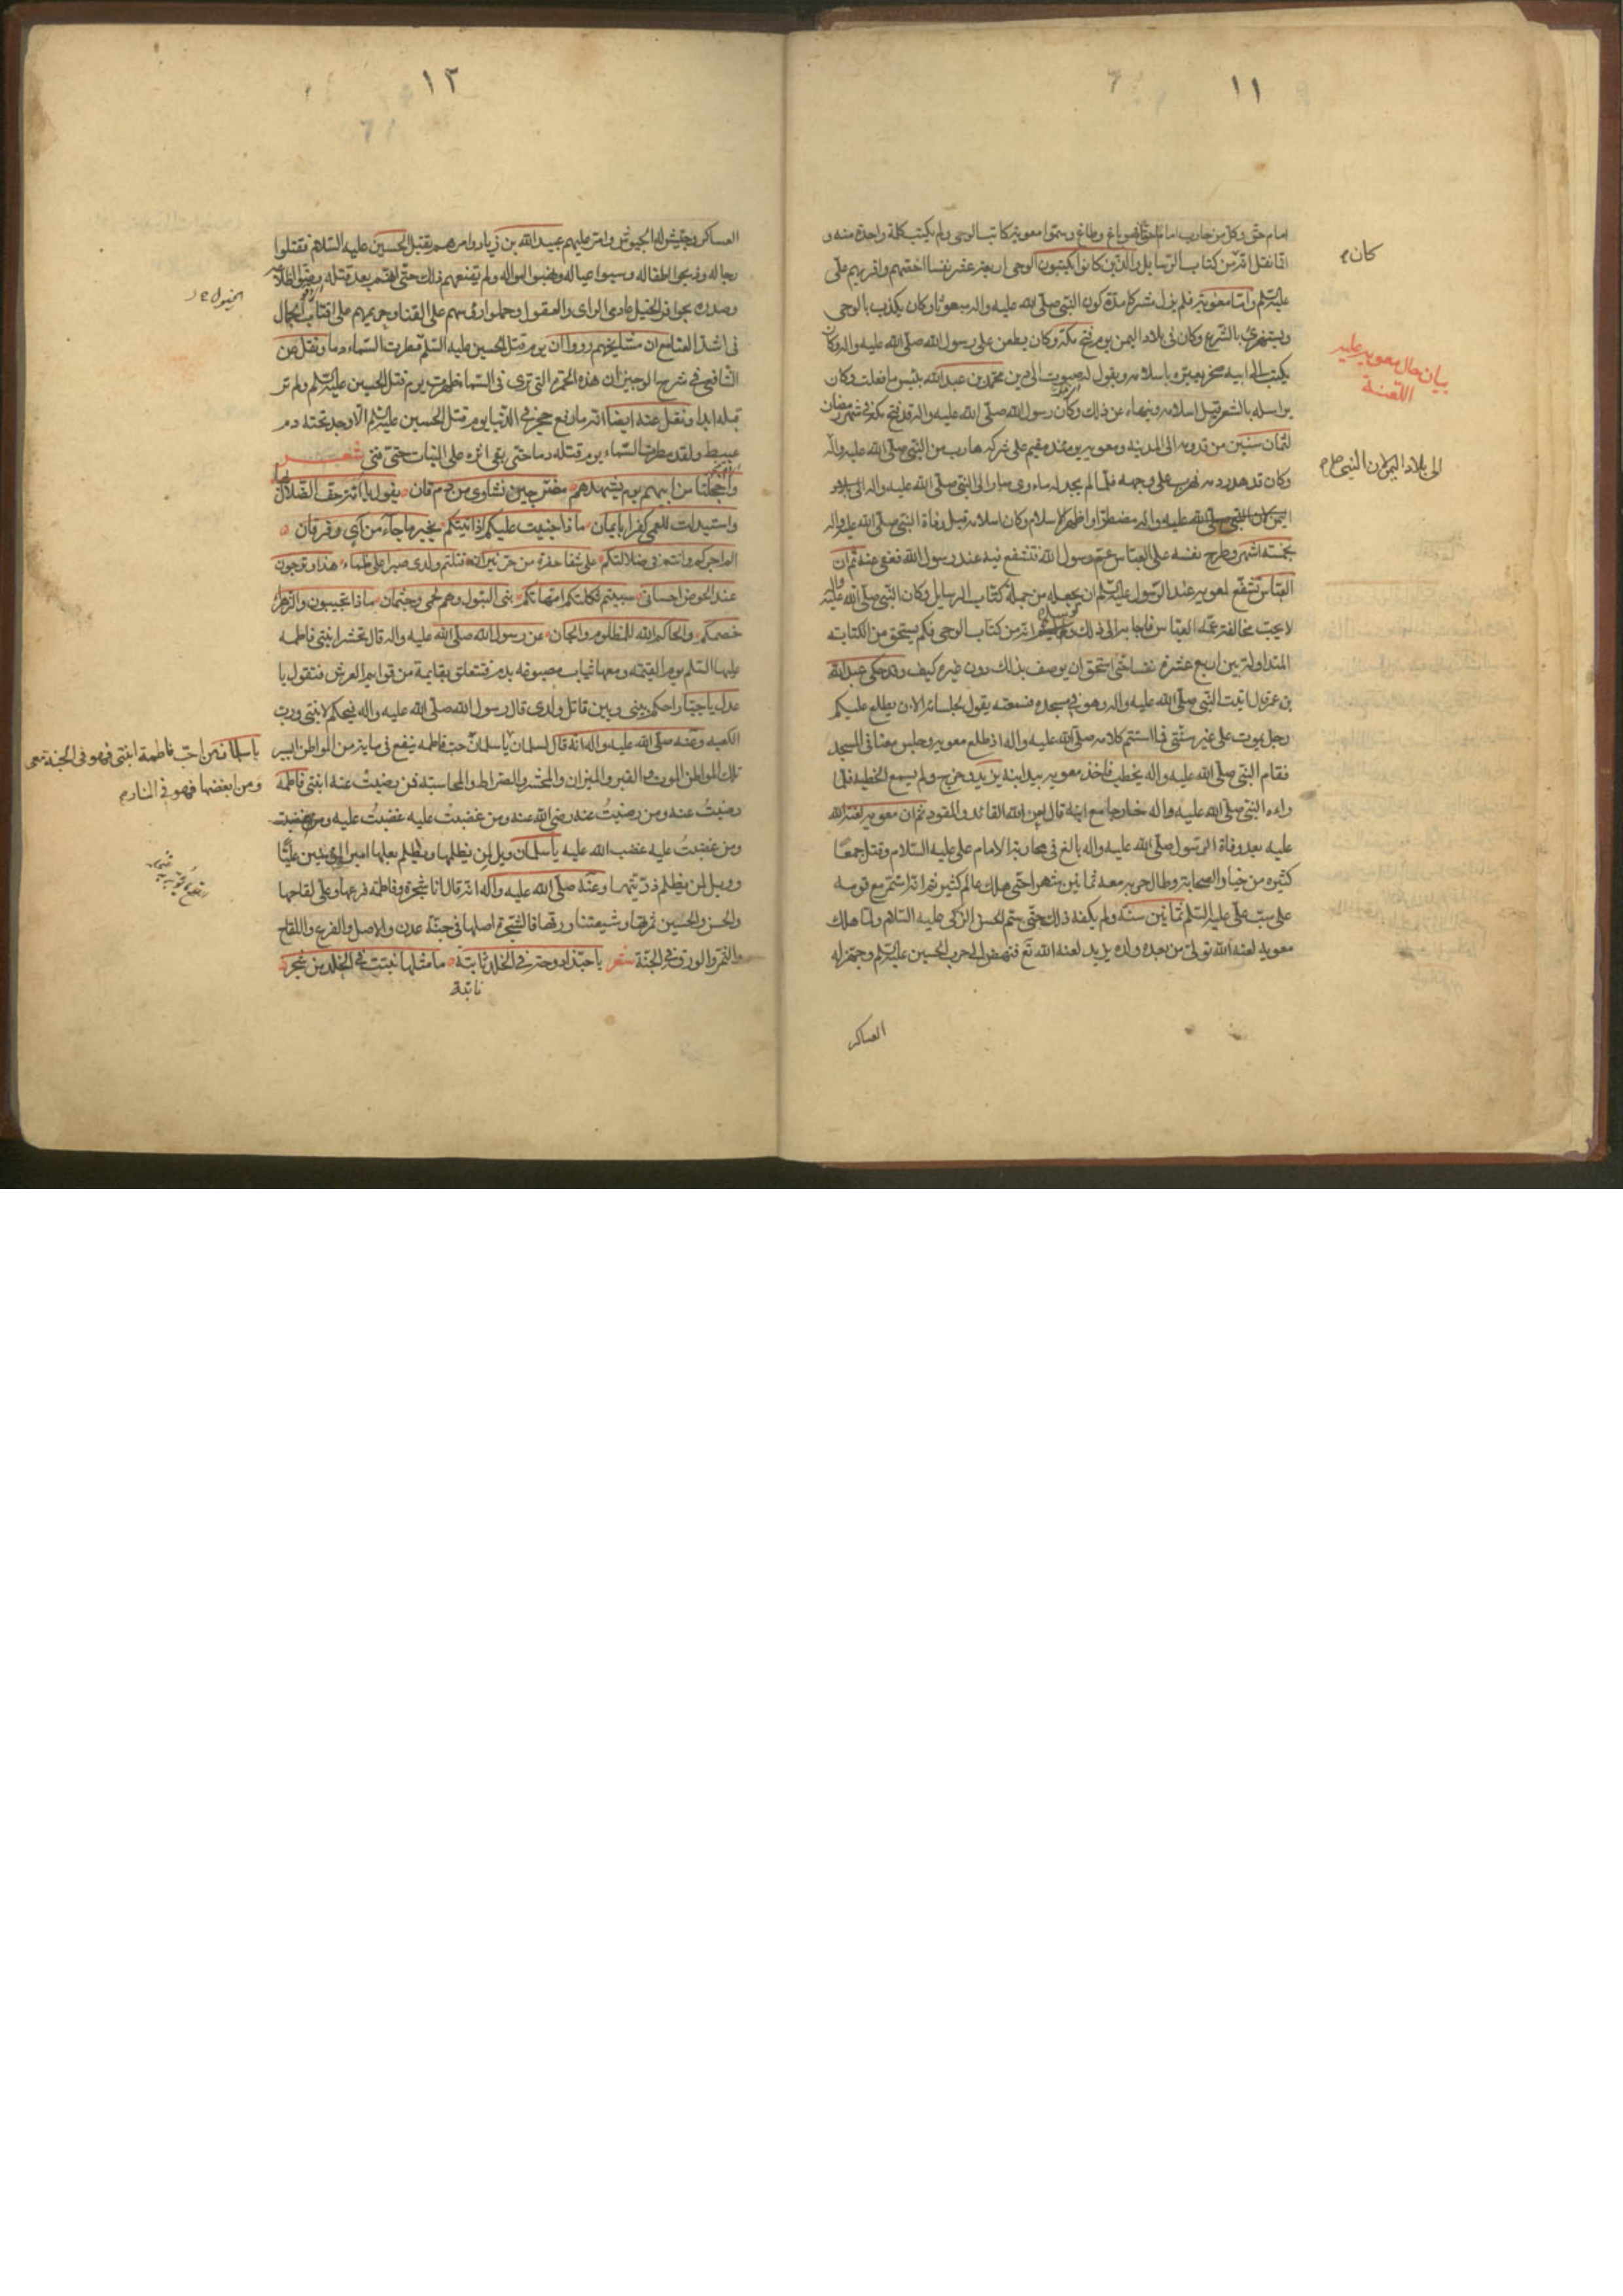 ١١
امام حق وكل من حارب امام الحق فهو باغ وطاغ وسموا معوية كاتب الوحي ولم يكتب كلمة واحدة منه و
انما نقل انه من كتاب الرسايل والذين كانوا يكتبون الوحي اربعة عشر نفسا اخصهم واقربهم علي
عليه السلم واما معوية فلم يزل مشركا مدة كون النبي صلى الله عليه واله مبعوثا وكان يكذب بالوحي
ويستهزئ بالشرع وكان في بلاد اليمن يوم فتح مكة وكان يطعن على رسول الله صلى الله عليه واله وكان
يكتب الى ابيه صخر يعيره باسلامه ويقول له صبوت الى دين محمد بن عبد الله بئس ما فعلت وكان
يراسله بالشعر قبل اسلامه وينهاه عن ذلك وكان رسول الله صلى الله عليه واله قد فتح مكة في شهر رمضان
لثمان سنين من قدومه الى المدينة ومعوية يومئذ مقيم على شركه هارب من النبي صلى الله عليه واله
وكان قد هدر دمه فهرب على وجهه فلما لم يجد له ماوى سار الى النبي صلى الله عليه واله الى بلاد
اليمن لان النبي صلى الله عليه واله مضطرا واظهر الاسلام وكان اسلامه قبل وفاة النبي صلى الله عليه واله
بخمسة اشهر وطرح نفسه على العباس عم رسول الله فتشفع فيه عند رسول الله فعفى عنه ثم ان
العباس تشفع لمعوية عند الرسول عليه السلم ان يجعله من جملة كتاب الرسايل وكان النبي صلى الله عليه
لا يحب مخالفة عمه العباس فاجابه الى ذلك انه من كتاب الوحي فكم يستحق من الكتابة
المتداولة بين اربع عشرة نفسا حتى استحق ان يوصف بذلك دون غيره كيف وقد حكى عبد الله
بن عمر قال اتيت النبي صلى الله عليه واله وهو في مسجده فسمعته يقول لجلسائه الان يطلع عليكم
رجل يموت على غير سنتي فما استتم كلامه صلى الله عليه واله اذ طلع معوية وجلس معنا في المسجد
فقام النبي صلى الله عليه واله يخطب فاخذ معوية بيد ابنه يزيد وخرج ولم يسمع الخطبة فلما
راه النبي صلى الله عليه واله خارجا مع ابنه قال لعن الله القائد والمقود ثم ان معوية لعنة الله
عليه بعد وفاة الرسول صلى الله عليه واله بالغ في محاربة الامام علي عليه السلام وقتل جمعا
كثيره من خيار الصحابة وطال حربه معه ثمانين شهرا حتى هلك عالم كثير ثم انه استمر مع قومه
على سب علي عليه السلم ثمانين سنة ولم يكفه ذلك حتى سم الحسن الزكي عليه السلام ولما هلك
معوية لعنه الله تولى من بعده ولده يزيد لعنه الله تع فنهض الى حرب الحسين عليه السلم وجهز له
العساكر
كان م
بيان حال معوية عليه
اللعنة
الى بلاد اليمن لان النبي ص م
١٢
العساكر وجيش له الجيوش وامر عليهم عبيد الله بن زياد وامرهم بقتل الحسين عليه السلام فقتلوا
رجاله وذبحوا اطفاله وسبوا عياله ونهبوا امواله ولم يقنعهم ذلك حتى انهم بعد قتله رضوا اظلاعه
وصدره بحوافر الخيل وحملوا رؤسهم على القنا وحريمهم على اقتاب الجمال
في اشد العنا مع ان مشايخهم رووا ان يوم قتل الحسين عليه السلم مطرت السماء دما ونقل عن
الشافعي في شرح الوجيز ان هذه الحمرة التي ترى في السما ظهرت يوم قتل الحسين عليه السلم ولم تر
قبله ابدا ونقل عنه ايضا انه ما رفع حجر في الدنيا يوم قتل الحسين عليه السلم الا وجد تحته دم
عبيط ولقد مطرت السماء يوم قتله دما حتى بقى اثره على النبات حتى فنى شعر
واخجلتا من ابيهم يوم يشهدهم مضرجين نشاوى من دم قان يقول يا امة حف الضلال بها
واستبدلت للعمى كفرا بايمان ماذا جنيت عليكم اذ اتيتكم بخير ما جاء من آي وفرقان
الم اجركم وانتم في ضلالتكم على شفا حفرة من حر نيران قتلتم ولدي صبرا على ظماء هذا وترجون
عند الحوض احساني سبيتم ثكلتكم امهاتكم بنى البتول وهم لحمي وجثماني ماذا تجيبون والزهراء
خصمكم والحاكم الله للمظلوم والجان عن رسول الله صلى الله عليه واله قال تحشر ابنتي فاطمه
عليها السلم يوم القيمة ومعها ثياب مصبوغة بدم فتتعلق بقايمة من قوايم العرش فتقول يا
عدل يا جبار احكم بيني وبين قاتل ولدي قال رسول الله صلى الله عليه واله فيحكم لابنتي ورب
الكعبه وعنه صلى الله عليه واله انه قال لسلمان يا سلمان حب فاطمه ينفع في ماية من المواطن ايسر
تلك المواطن الموت والقبر والميزان والمحشر والصراط والمحاسبة فمن رضيت عنه ابنتي فاطمة
رضيت عنه ومن رضيت عنه رضي الله عنه ومن غضبت عليه غضبت عليه ومن غضبت
ومن غضبت عليه غضب الله عليه يا سلمان ويل لمن يظلمها ويظلم بعلها امير المؤمنين عليا
وويل لمن يظلم ذريتهما وعنه صلى الله عليه واله انه قال انا شجرة وفاطمة فرعها وعلي لقاحها
والحسن والحسين ثمرتها وشيعتنا ورقها فالشجرة اصلها في جنة عدن والاصل والفرع واللقاح
والثمر والورق في الجنة شعر يا حبذا دوحة في الخلد ثابتة ما مثلها نبتت في الخلد من شجر
نابتة
الخيول
يا سلمان من احب فاطمة ابنتي فهو في الجنة معي
ومن ابغضها فهو في النار م